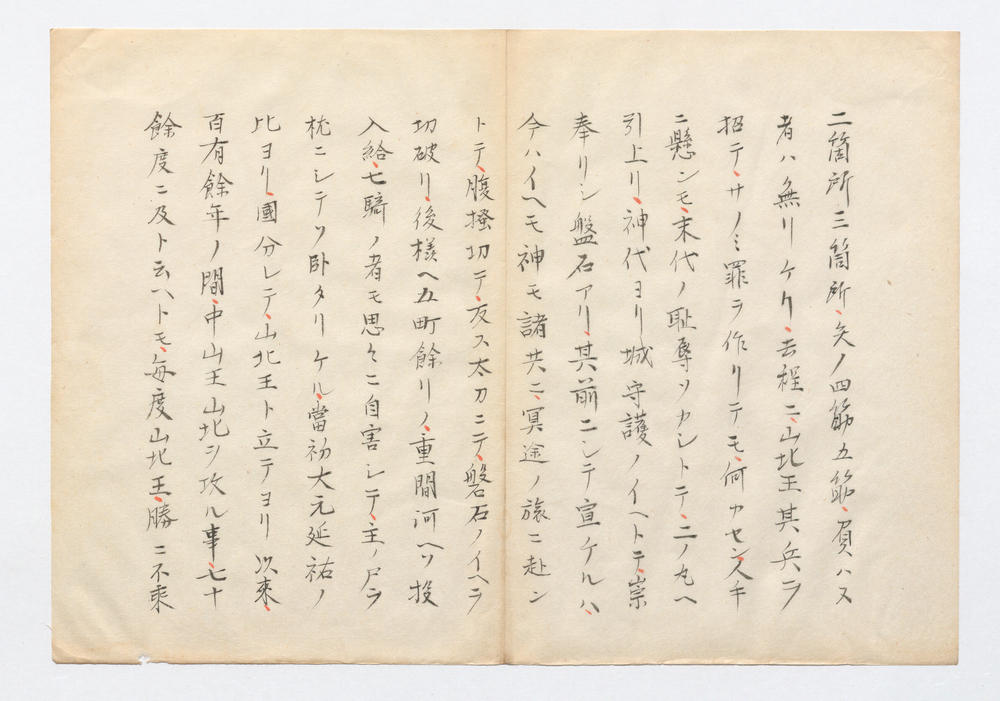 二箇所三箇所、矢ノ四筋五筋、負ハス
者ハ無リケリ、去程ニ、山北王其兵ヲ
招テ、サノミ罪ヲ作リテモ、何カセン、人手
ニ懸ンモ、末代ノ耻辱ソカシトテ、二ノ丸ヘ
引上リ、神代ヨリ城守護ノイヘトテ、崇
奉リシ盤石アリ、其前ニシテ宣ケルハ、
今ハイヘモ神モ諸共ニ、冥途ノ旅ニ赴ン
トテ、腹掻切テ、反ス太刀ニテ、磐石ノイヘヲ
切破リ、後様ヘ五町餘リノ、重間河ヘソ投
入給、七騎ノ者モ思々ニ自害シテ、主ノ尸ヲ
枕ニシテソ卧タリケル、當初大元延祐ノ
比ヨリ、國分レテ、山北王ト立テヨリ以來、
百有餘年ノ間、中山王山北ヲ攻ル事、七十
餘度ニ及ト云ヘトモ、毎度山北王、勝ニ不乘